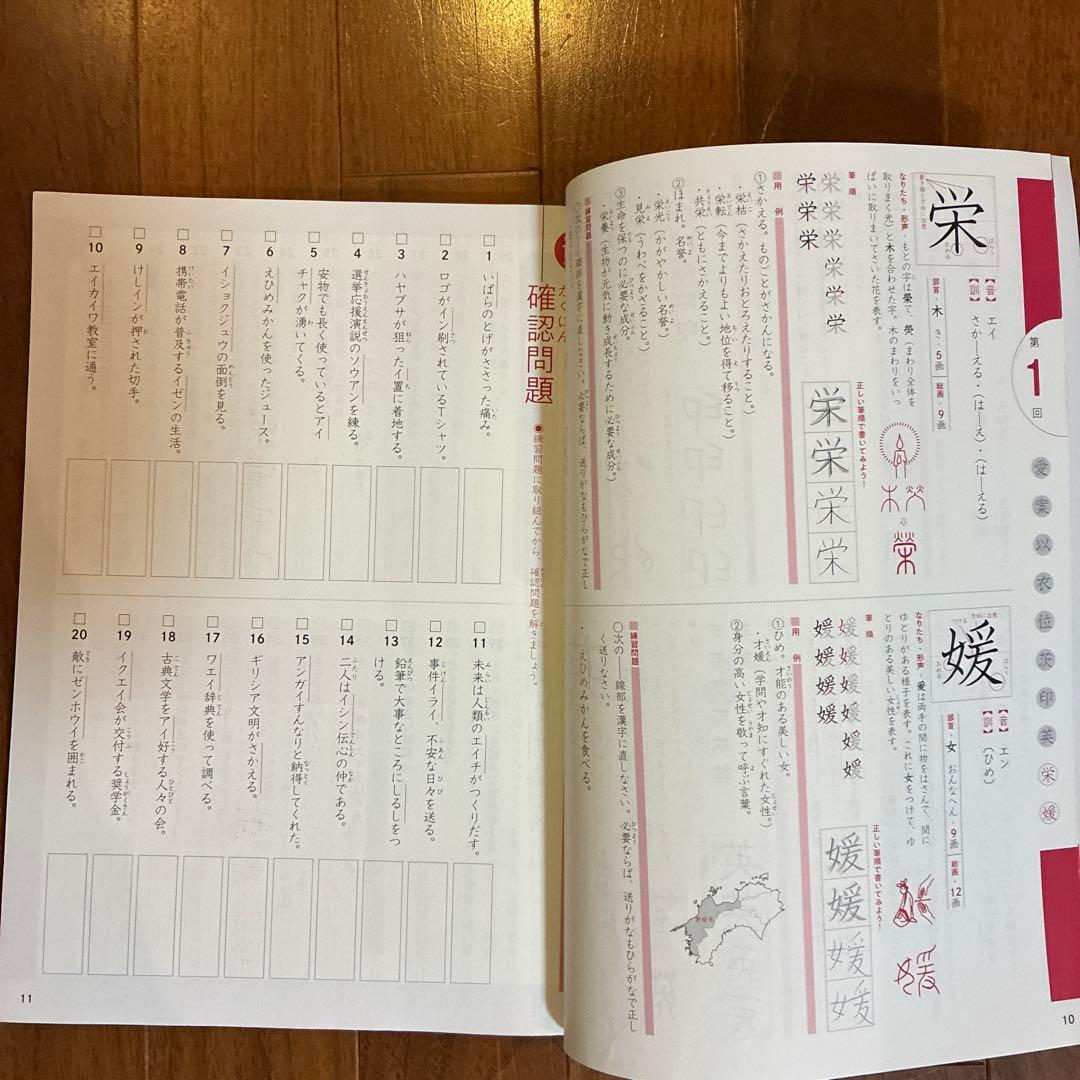 第1回
愛案以衣位茨印英栄媛
栄
【音】エイ
【訓】さか―える・(は―え)・(は―える)
部首・木 き・5画 総画・9画
なりたち・形声・もとの字は榮で、熒(まわり全体を
取りまく光)と木を合わせた字。木のまわりをいっ
ぱいに取りまいてさいた花を表す。
筆順
栄栄栄栄栄栄栄栄
正しい筆順で書いてみよう!
栄栄栄栄
用例
①さかえる。ものごとがさかんになる。
・栄枯(さかえたりおとろえたりすること。)
・栄転(今までよりもよい地位を得て移ること。)
・共栄(ともにさかえること。)
②ほまれ。名誉。
・栄光(かがやかしい名誉。)
・見栄(うわべをかざること。)
③生命を保つのに必要な成分。
・栄養(生物が元気に動き成長するために必要な成分。)
練習問題
○次の――線部を漢字に直しなさい。必要ならば、送りがなもひらがなで正し
媛
【音】エン
【訓】(ひめ)
部首・女 おんなへん・9画 総画・12画
なりたち・形声・爰は両手の間に物をはさんで、間に
ゆとりがある様子を表す。これに女をつけて、ゆ
とりのある美しい女性を表す。
筆順
媛媛媛媛媛媛媛媛媛
正しい筆順で書いてみよう!
媛媛媛媛
用例
①ひめ。才能のある美しい女。
・才媛(学問や才知にすぐれた女性。)
②身分の高い女性を敬って呼ぶ言葉。
愛媛県
練習問題
○次の――線部を漢字に直しなさい。必要ならば、送りがなもひらがなで正し
く送りなさい。
・えひめみかんを食べる。
10
確認問題
●練習問題に取り組んでから、確認問題を解きましょう。
□1 いばらのとげがささった痛み。
□2 ロゴがイン刷されているTシャツ。
□3 ハヤブサが狙ったイ置に着地する。
□4 選挙応援演説のソウアンを練る。
□5 安物でも長く使っているとアイ
チャクが湧いてくる。
□6 えひめみかんを使ったジュース。
□7 イショクジュウの面倒を見る。
□8 携帯電話が普及するイゼンの生活。
□9 けしインが押された切手。
□10 エイカイワ教室に通う。
□11 未来は人類のエイチがつくりだす。
□12 事件イライ、不安な日々を送る。
□13 鉛筆で大事なところにしるしをつ
ける。
□14 二人はイシン伝心の仲である。
□15 アンガイすんなりと納得してくれた。
□16 ギリシア文明がさかえる。
□17 ワエイ辞典を使って調べる。
□18 古典文学をアイ好する人々の会。
□19 イクエイ会が交付する奨学金。
□20 敵にゼンホウイを囲まれる。
11